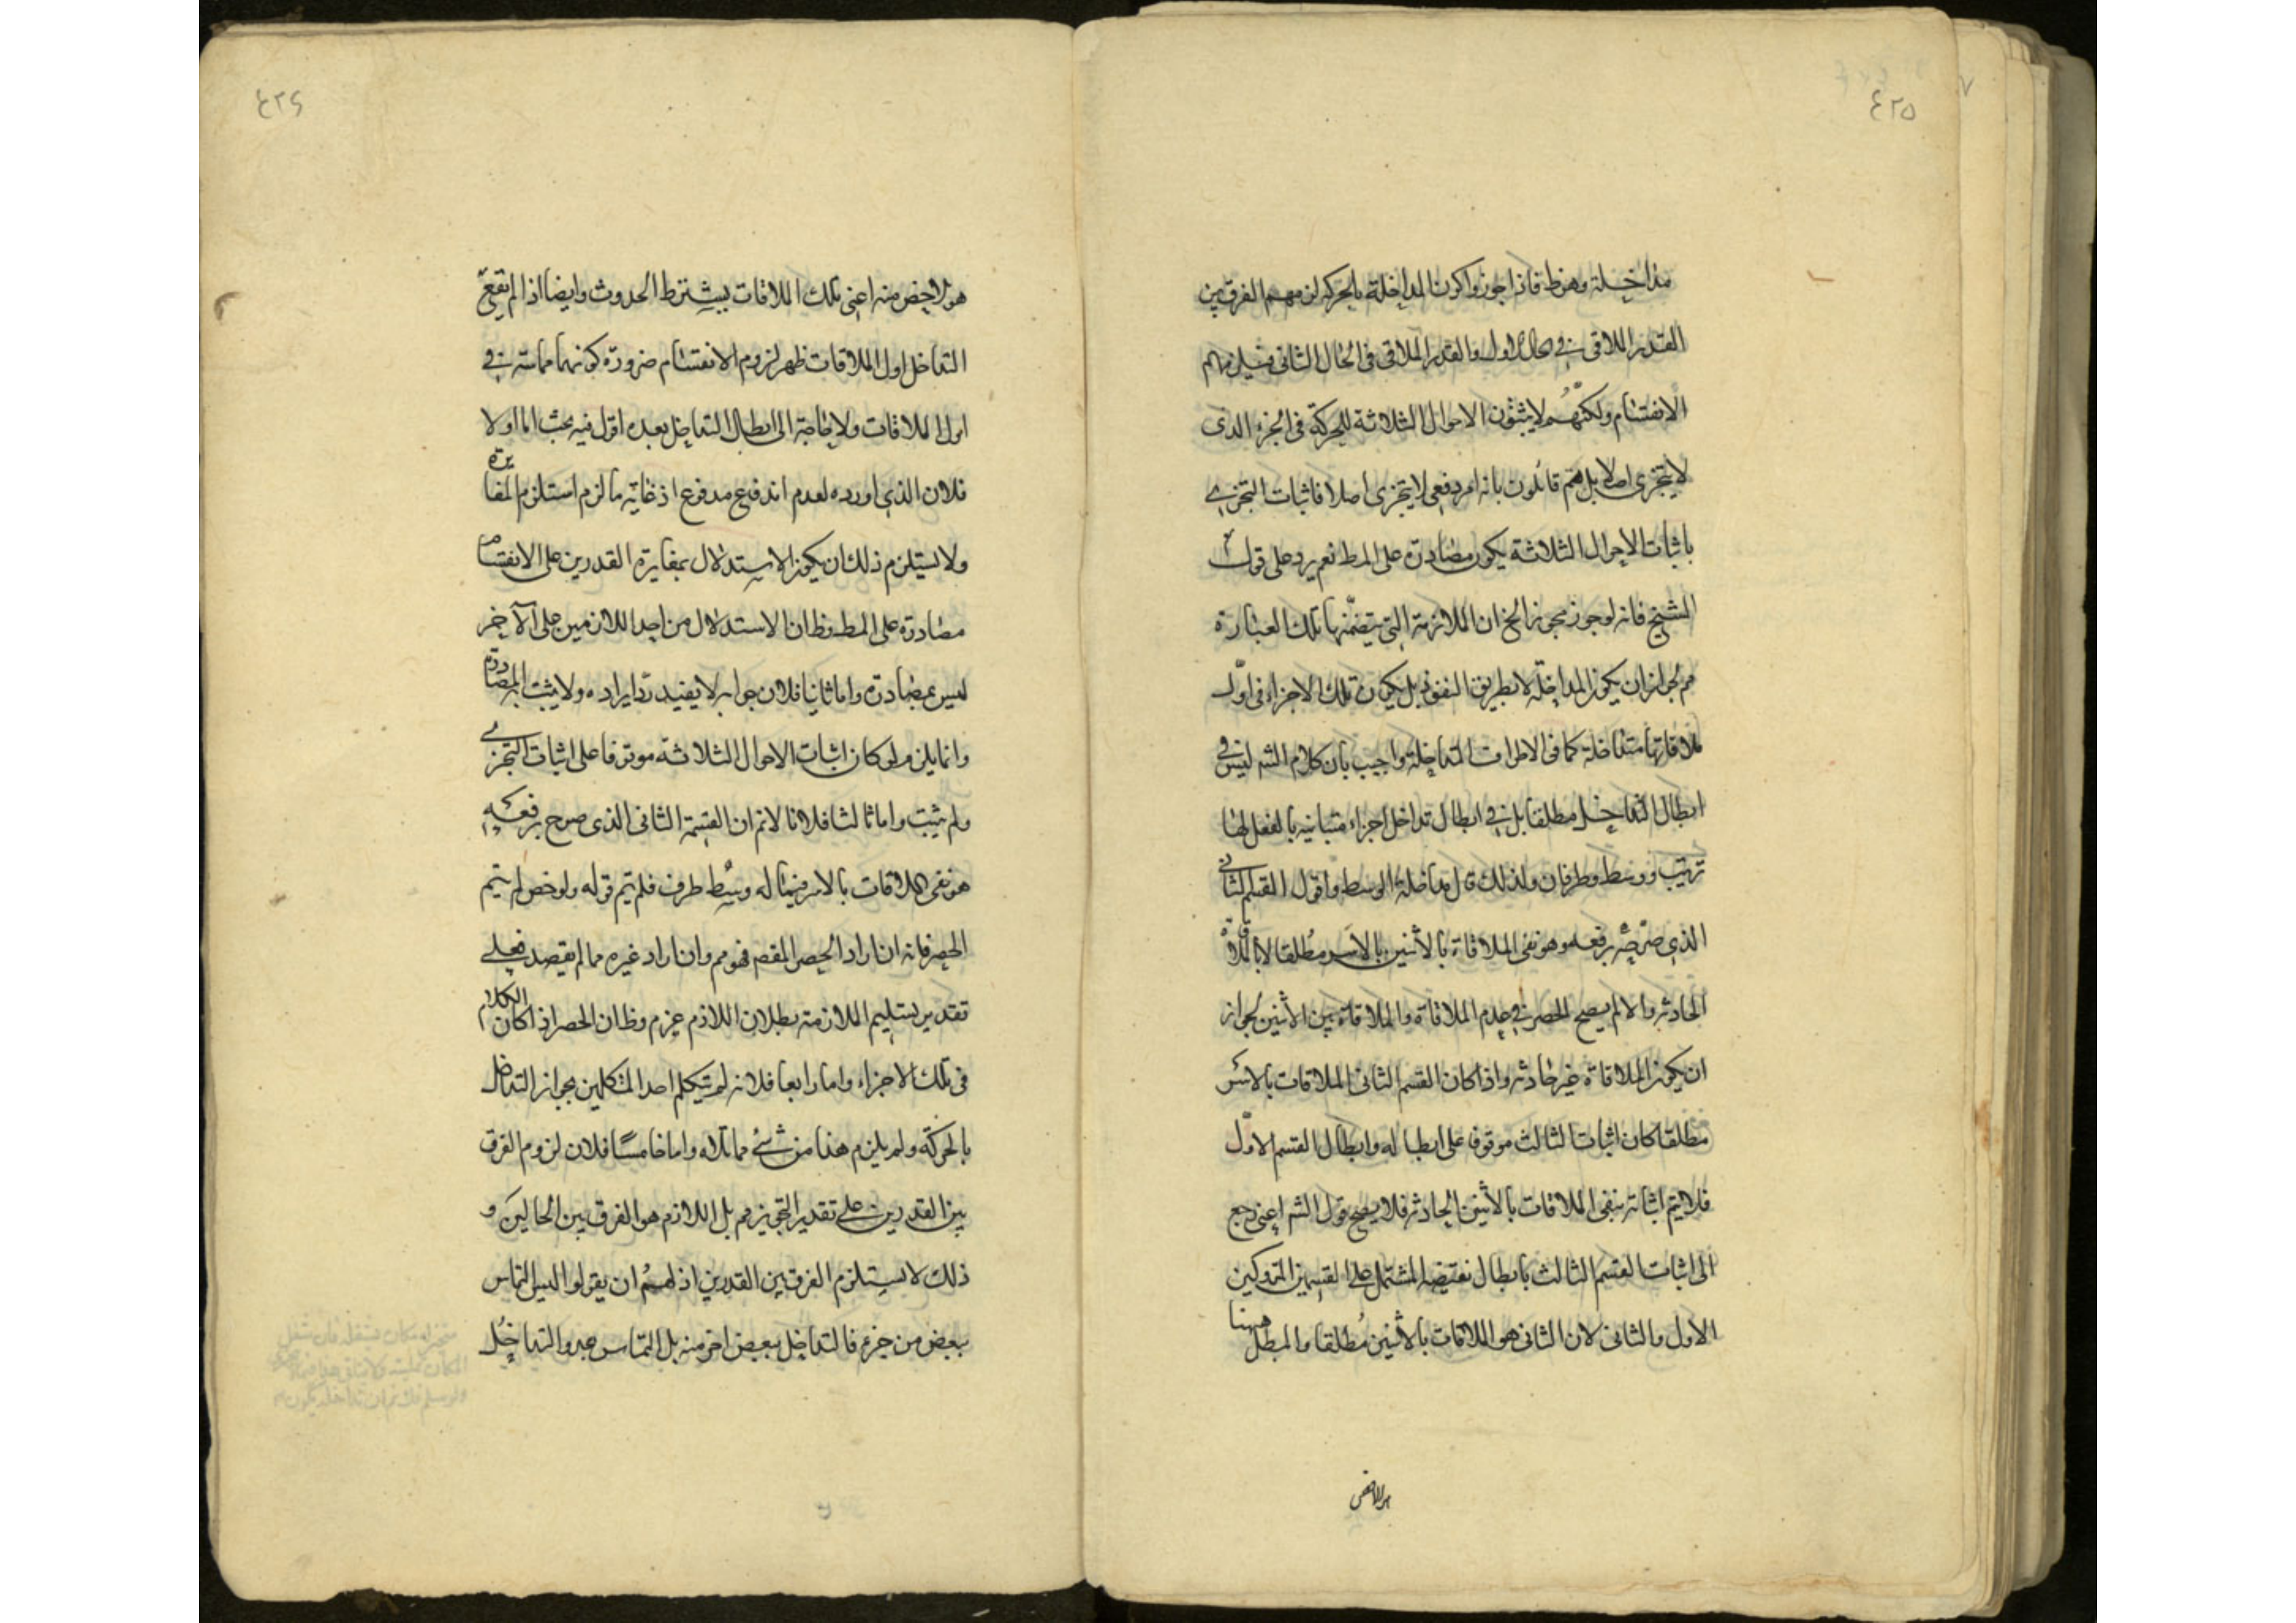 ٤٢٥
مداخلة وهو ظ فاذا جوزوا كون المداخلة بالحركة لزمهم الفرق بين
القدر الملاقى في الحال الاول والقدر الملاقى فى الحال الثانى فيلزمهم
الانقسام ولكنهم لا يثبتون الاحوال الثلاثة للحركة فى الجزء الذى
لا يتجزى اصلا بل هم قائلون بانه امر دفعى لا يتجزى اصلا فاثبات التجزى
باثبات الاحوال الثلاثة يكون مصادرة على المط نعم يرد على قول
الشيخ فانه لوجوز مجوز الخ ان الملازمة التى يتضمنها تلك العبارة
مم لجواز ان يكون المداخلة لا بطريق النفوذ بل يكون تلك الاجزاء فى اول
ملاقاتها متداخلة كما فى الاطراف المتداخلة واجيب بان كلام الشم ليس فى
ابطال التداخل مطلقا بل فى ابطال تداخل اجزاء متباينه بالفعل لها
ترتيب ووسط وطرفان ولذلك قال مداخلة الوسط واقول القسم الثانى
الذى صرح برفعه وهو نفى الملاقاة بالاثنين بالاسر مطلقا لا بالملاقاة
الحادثه والا لم يصح الحصر فى عدم الملاقاة والملاقاة بين الاثنين لجواز
ان يكون الملاقاة غير حادثه واذا كان القسم الثانى الملاقات بالاسر
مطلقا كان اثبات الثالث موقوفا على ابطاله وابطال القسم الاول
فلا يتم اثباته بنفى الملاقات بالاثنين الحادثه فلا يصح قول الشم اعنى رجع
الى اثبات القسم الثالث بابطال نقيضه المشتمل على القسمين المتروكين
الاول والثانى لان الثانى هو الملاقات بالاثنين مطلقا والمبطل ههنا
هو الاخص
٤٢٦
هو الاخص منه اعنى تلك الملاقات بشرط الحدوث وايضا اذا لم يقع
التداخل اول الملاقات ظهر لزوم الانقسام ضرورة كونهما مماسة فى
اول الملاقات ولا حاجة الى ابطال التداخل بعده اقول فيه بحث اما اولا
فلان الذى اورده لعدم اندفع مدفوع اذ غايته ما لزم استلزم المغايرة
ولا يستلزم ذلك ان يكون الاستدلال بمغايرة القدرين على الانقسام
مصادرة على المط وظ ان الاستدلال من احد اللازمين على الآخر
ليس بمصادرة واما ثانيا فلان جوابه لا يفيد رد ايراده ولا يثبت به المصادرة
وانما يلزم لو كان اثبات الاحوال الثلاثة موقوفا على اثبات التجزى
ولم يثبت واما ثالثا فلانا لا نم ان القسمة الثانى الذى صرح برفعه
هو نفى الملاقات بالاسر فيما له وسط طرف فلم يتم قوله ولو خص لم يتم
الحصر فانه ان اراد الحصر المقصم فهو مم وان اراد غيره مما لم يقصد فعلى
تقدير تسليم الملازمة بطلان اللازم عزم وظ ان الحصر اذا كان الكلام
فى تلك الاجزاء واما رابعا فلانه لم يتكلم احد المتكلمين بجواز التداخل
بالحركة ولم يلزم هذا من شئ مما تلاه واما خامسا فلان لزوم الفرق
بين القدرين على تقدير التجويز مم بل اللازم هو الفرق بين الحالين و
ذلك لا يستلزم الفرق بين القدرين اذ لهم ان يقولوا ليس التماس
ببعض من جزء فالتداخل ببعض اخر منه بل التماس هو والتداخل